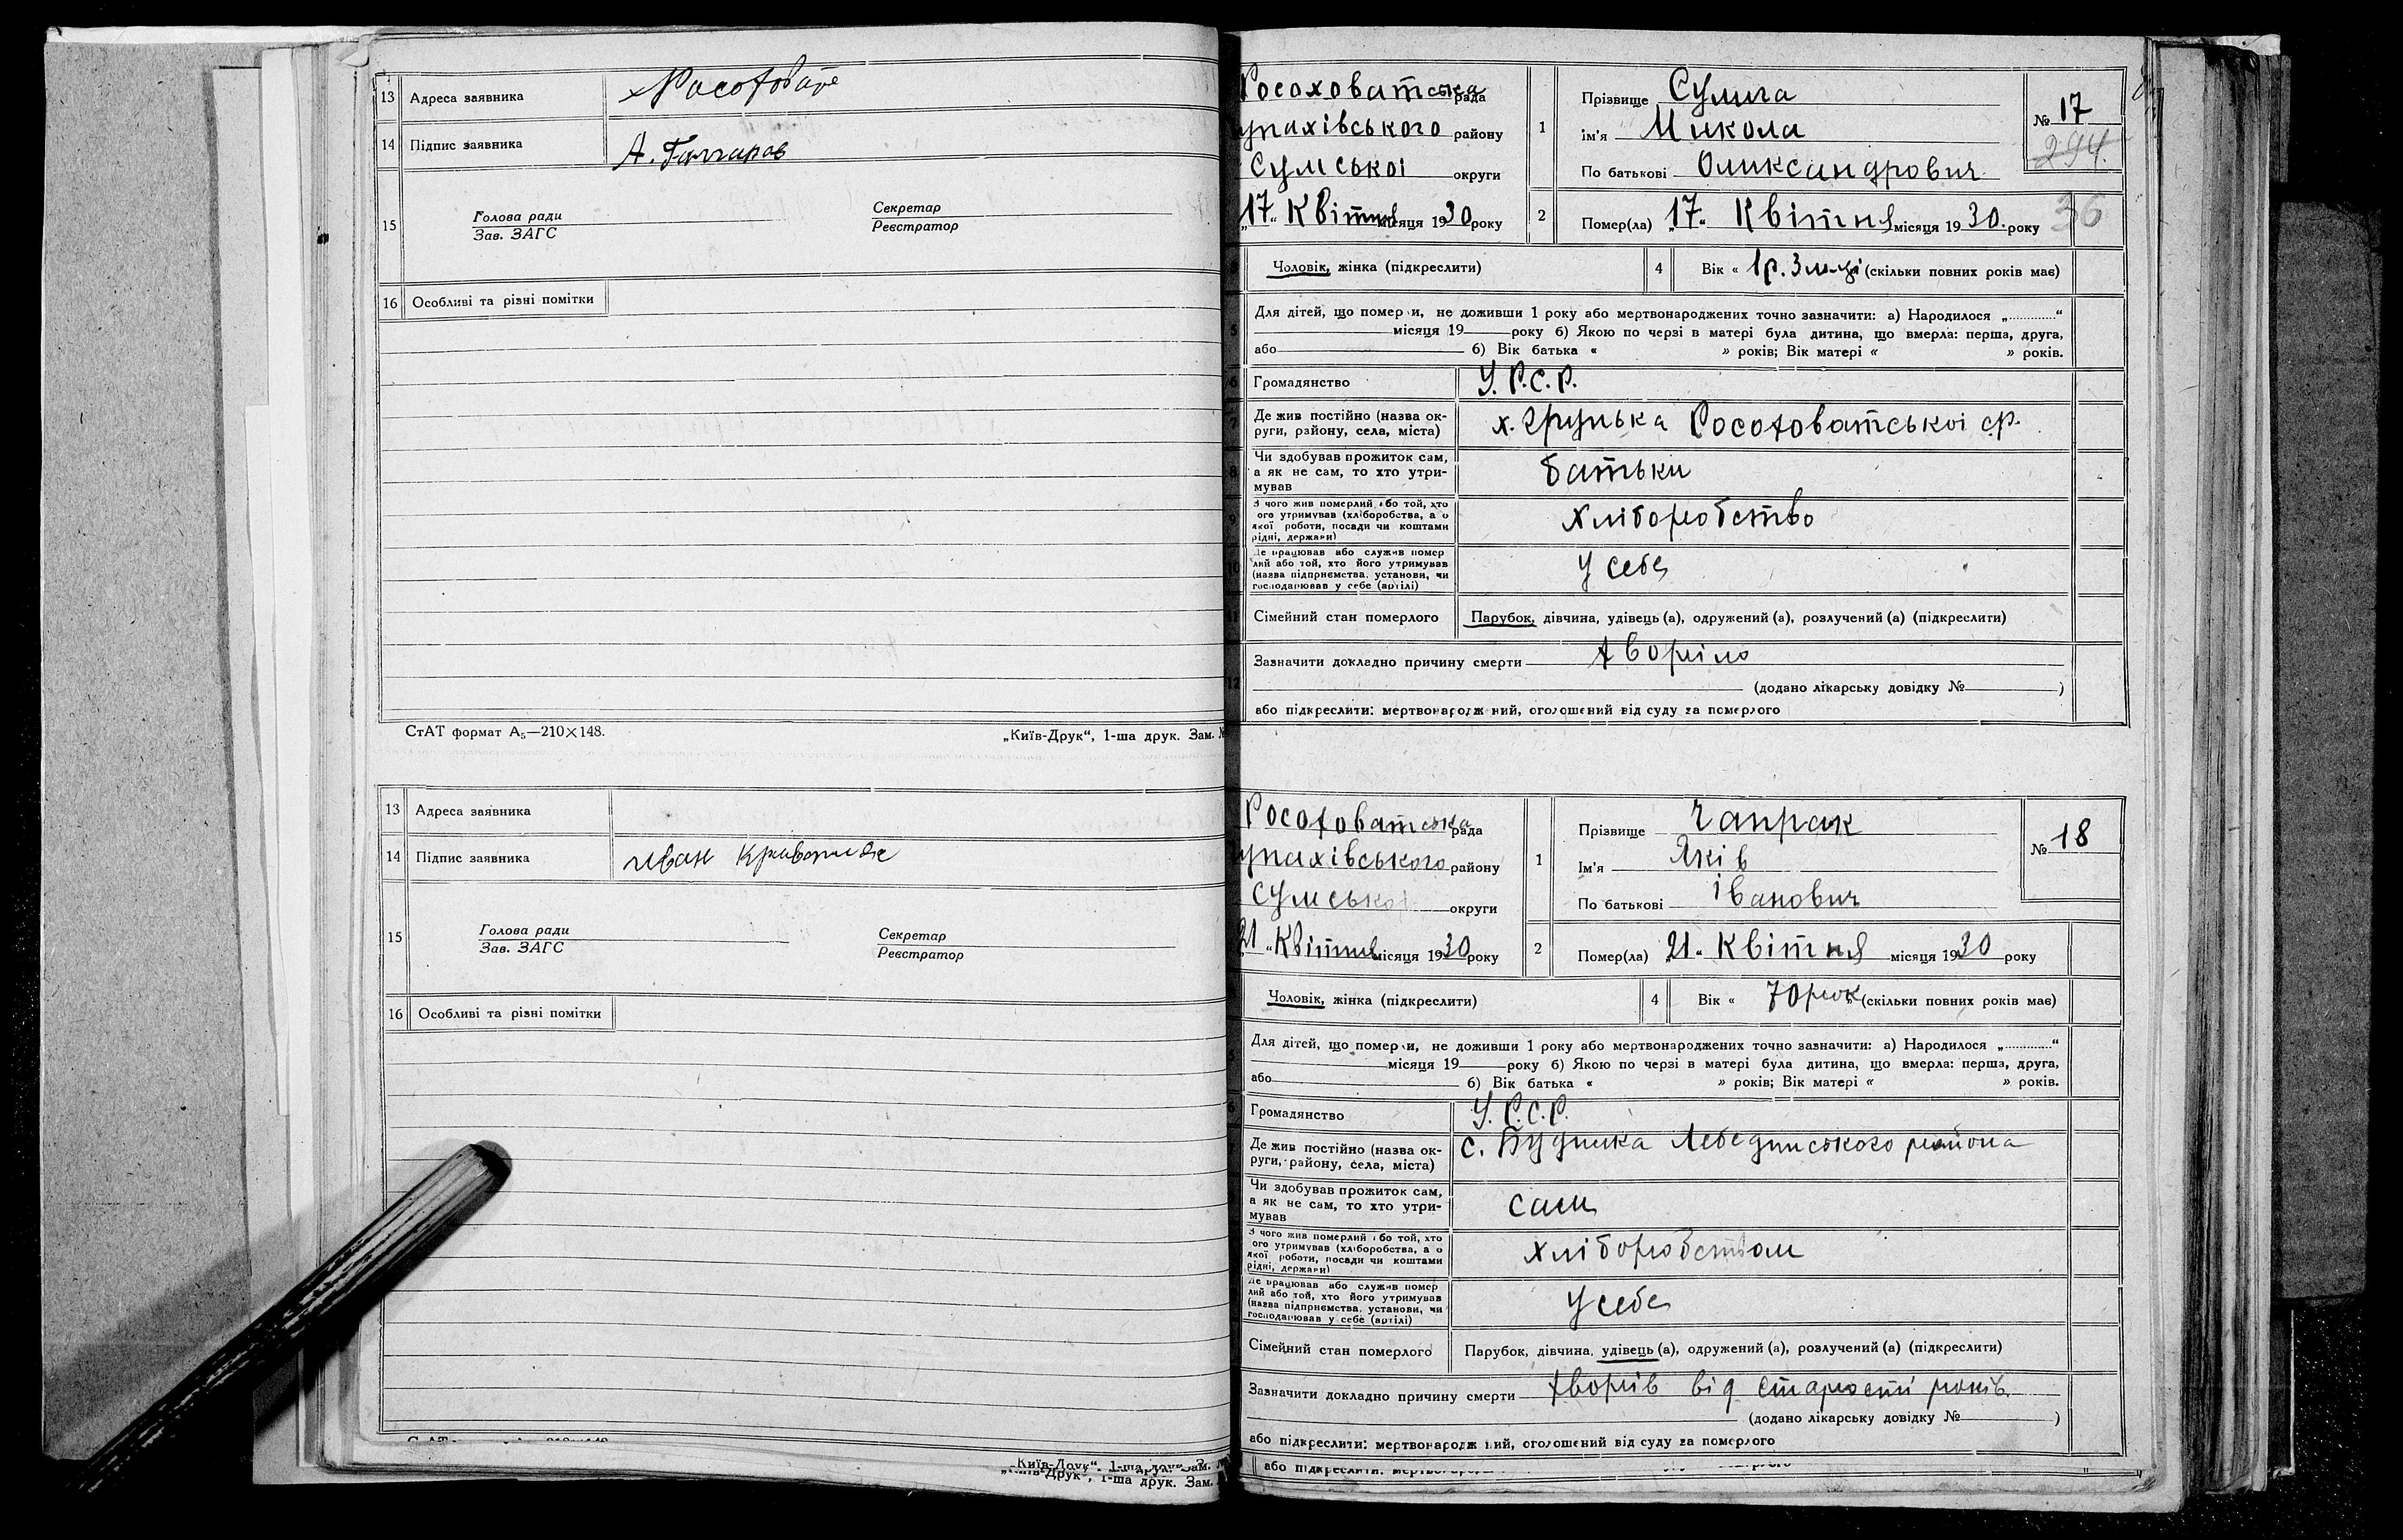 13 Адреса заявника х Росоховате
14 Підпис заявника А. Гончаров
15 Голова ради Секретар
Зав. ЗАГС Реєстратор
16 Особливі та різні помітки
СтАТ формат А₅—210×148. „Київ-Друк“, 1-ша друк. Зам. №
13 Адреса заявника
14 Підпис заявника Иван
15 Голова ради Секретар
Зав. ЗАГС Реєстратор
16 Особливі та різні помітки
„Київ-Друк“, 1-ша друк. Зам.
„Київ-Друк“, 1-ша друк. Зам.
Росоховатська рада
упахівського району
Сумської округи
„17“ Квітня місяця 1930 року
1 Прізвище Сулига
Ім'я Микола
По батькові Олександрович
№ 17
294.
2 Помер(ла) „17“ Квітня місяця 1930. року
36
Чоловік, жінка (підкреслити) 4 Вік « 1р. 3 м-ці (скільки повних років має)
Для дітей, що померли, не доживши 1 року або мертвонароджених точно зазначити: а) Народилося „............“
5 місяця 19 року б) Якою по черзі в матері була дитина, що вмерла: перша, друга,
або б) Вік батька « » років; Вік матері « » років.
6 Громадянство У. Р.С.Р.
7 Де жив постійно (назва ок-
руги, району, села, міста) х. Грунька Росоховатської с.р.
8 Чи здобував прожиток сам,
а як не сам, то хто утри-
мував батьки
9 З чого жив померлий або той, хто
ого утримував (хліборобства, а о
якої роботи, посади чи коштами
рідні, держави) хліборобство
10 Де працював або служив помер
лий або той, хто його утримував
(назва підприємства, установи, чи
господарював у себе (артілі) у себе
11 Сімейний стан померлого Парубок, дівчина, удівець (а), одружений (а), розлучений (а) (підкреслити)
12 Зазначити докладно причину смерти хворіло
(додано лікарську довідку № )
або підкреслити: мертвонароджений, оголошений від суду за померлого
Росоховатська рада
упахівського району
Сумської округи
21 „ Квітня місяця 1930 року
1 Прізвище Чапрак
Ім'я Яків
По батькові Іванович
№ 18
2 Помер(ла) „21“ Квітня місяця 1930 року
Чоловік, жінка (підкреслити) 4 Вік « 70 рок (скільки повних років має)
Для дітей, що померли, не доживши 1 року або мертвонароджених точно зазначити: а) Народилося „.............“
місяця 19 року б) Якою по черзі в матері була дитина, що вмерла: перша, друга,
або б) Вік батька « » років; Вік матері « » років.
6 Громадянство У. Р.С.Р.
Де жив постійно (назва ок-
руги, району, села, міста) с. Будилка Лебединського района
Чи здобував прожиток сам,
а як не сам, то хто утри-
мував сам
З чого жив померлий або той, хто
ого утримував (хліборобства, а о
якої роботи, посади чи коштами
рідні, держави) хліборобством
Де працював або служив помер
лий або той, хто його утримував
(назва підприємства, установи, чи
господарював у себе (артілі) у себе
Сімейний стан померлого Парубок, дівчина, удівець (а), одружений (а), розлучений (а) (підкреслити)
Зазначити докладно причину смерти хворів від старості років.
(додано лікарську довідку № )
або підкреслити: мертвонароджений, оголошений від суду за померлого
або підкреслити: